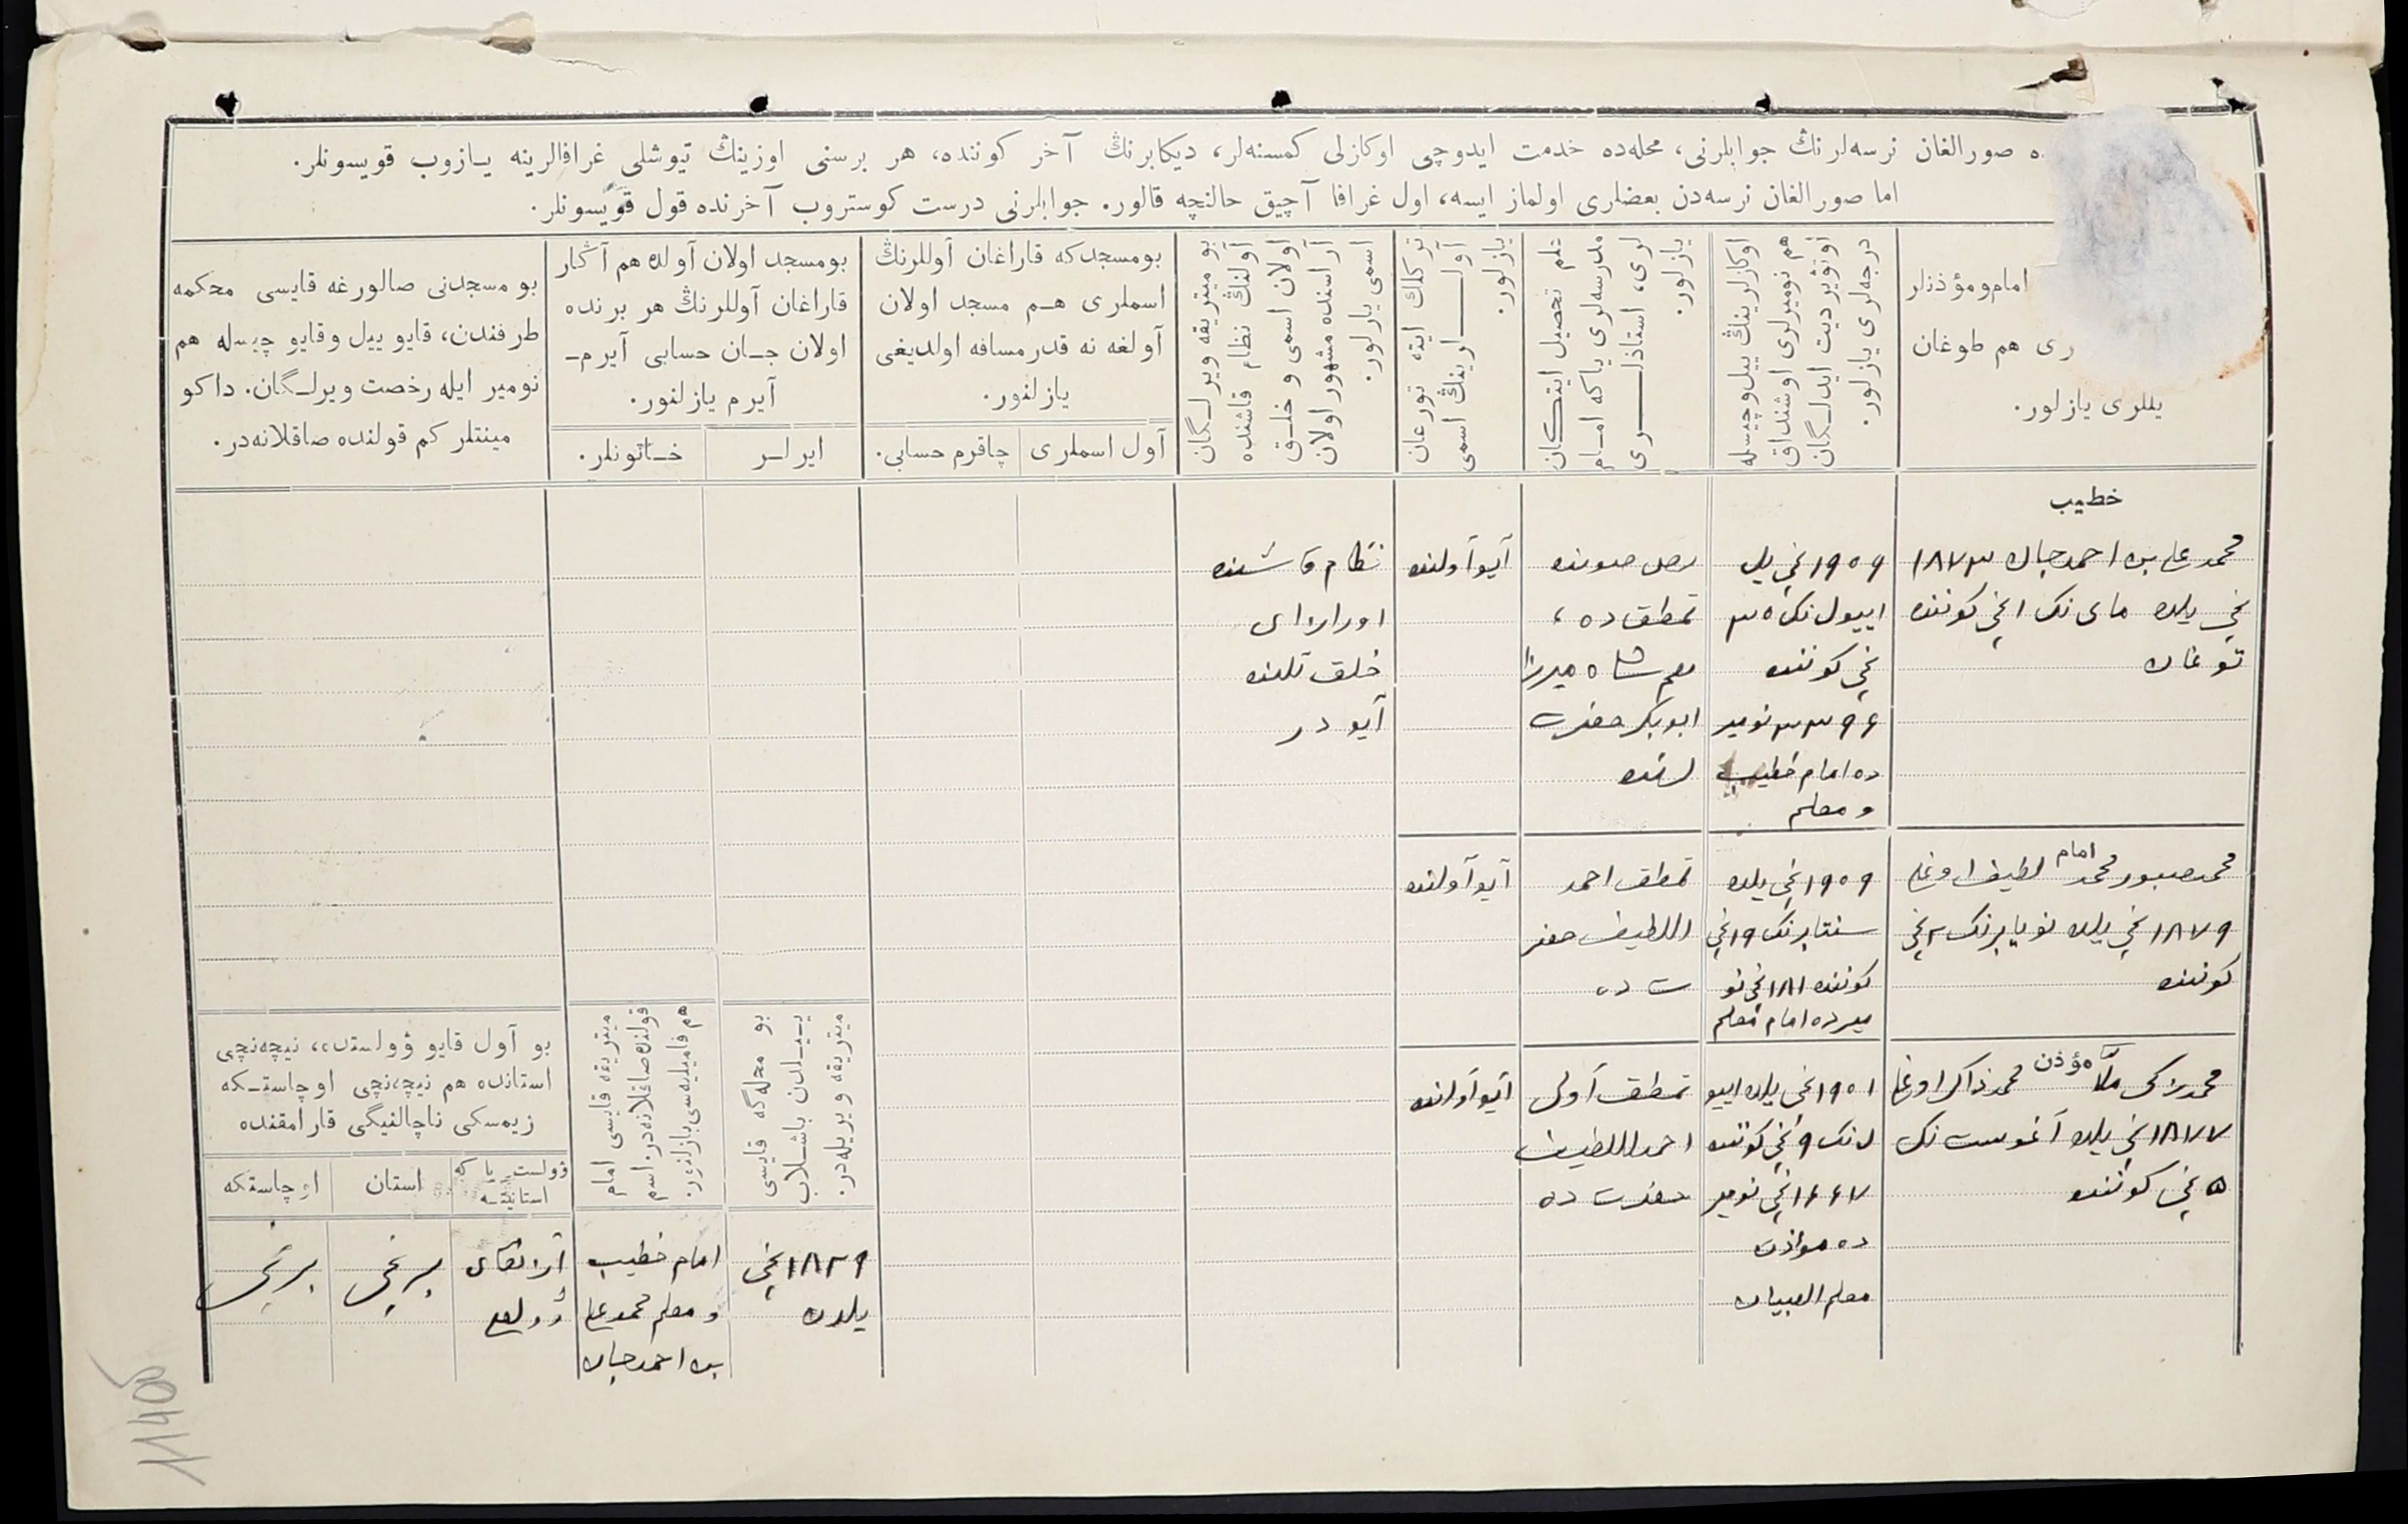 ه صورالغان نرسه‌لرنڭ جوابلرنی، محله‌ده خدمت ایدوچی اوکازلی کمسنه‌لر، دیکابرنڭ آخر کوننده، هر برسنی اوزینڭ تیوشلی غرافالرینه یازوب قویسونلر.
اما صورالغان نرسه‌دن بعضلری اولماز ایسه، اول غرافا آچیق حالنچه قالور. جوابلرنی درست کوستروب آخرنده قول قویسونلر.
امام ومؤذنلر
ری هم طوغان
یللری یازلور.
اوکازلرینڭ ییل وچیسله
هم نومیرلری اوشنداق
اوتویردیت ایدلگان
درجه‌لری یازلور.
علم تحصیل ایتکان
مدرسه‌لری یاکه امام
لری، استاذلری
یازلور.
ترکلك ایته تورغان
آوللرینڭ اسمی
یازلور.
بو میتریقه ویرلگان
آولنڭ نظام قاشنده
اولان اسمی و خلق
آراسنده مشهور اولان
اسمی یازلور.
بومسجدکه قاراغان آوللرنڭ
اسملری هم مسجد اولان
آولغه نه قدر مسافه اولدیغی
یازلنور.
آول اسملری
چاقرم حسابی.
بومسجد اولان آولده هم آڭار
قاراغان آوللرنڭ هر برنده
اولان جان حسابی آیرم-
آیرم یازلنور.
ایرلر
خاتونلر.
بو مسجدنی صالورغه قایسی محکمه
طرفندن، قایو ییل وقایو چیسله هم
نومیر ایله رخصت ویرلگان. داکو
مینتلر کم قولنده صاقلانه‌در.
خطیب
محمد علی بن احمدجان ۱۸۷۳
نچی یلده مای نک ۱ نچی کوننده
توغان
۱۹۰۹ نچی یل
اییول نک ۳۰
نچی کوننده
۳۳۹۶ نومیر
ده امام خطیب
و معلم
تمطق ده،
شاه میرزا
ابوبکر حضرت
لرنده
آیو آولنده
نظام قاشنده
اورارای
خلق تلنده
آیو در
امام
محمدصبور محمد لطیف اوغلی
۱۸۷۹ نچی یلده نویابرنک ۲ نچی
کوننده
۱۹۰۹ نچی یلده
سنتابرنک ۱۹ نچی
کوننده ۱۸۱ نچی نو
میرده امام معلم
تمطق احمد
اللطیف حضر
ت ده
آیو آولنده
مؤذن
محمدزکی ملّا محمدذاکر اوغلی
۱۸۷۷ نچی یلده آغوست نک
۵ نچی کوننده
۱۹۰۱ نچی یلده اییو
ل نک ۹ نچی کوننده
۱۶۶۷ نچی نومیر
ده مواذن
معلم الصبیان
تمطق آولی
احمداللطیف
حضرت ده
آیو آولنده
بو محله‌گه قایسی
ییلدن باشلاب
میتریقه ویریله‌در.
میتریقه قایسی امام
قولنده صاقلانه‌در، اسم
هم فامیلیه‌سی یازلنور.
بو آول قایو ۋولستده، نیچه‌نچی
استانده هم نیچه‌نچی اوچاستکه
زیمسکی ناچالنیگی قارامقنده
ۋولست یا که
استانیتسه
استان
اوچاستکه
۱۸۲۹ نچی
یلدن
امام خطیب
و معلم محمدعلی
بن احمدجان
برنچی
برنچی
11405